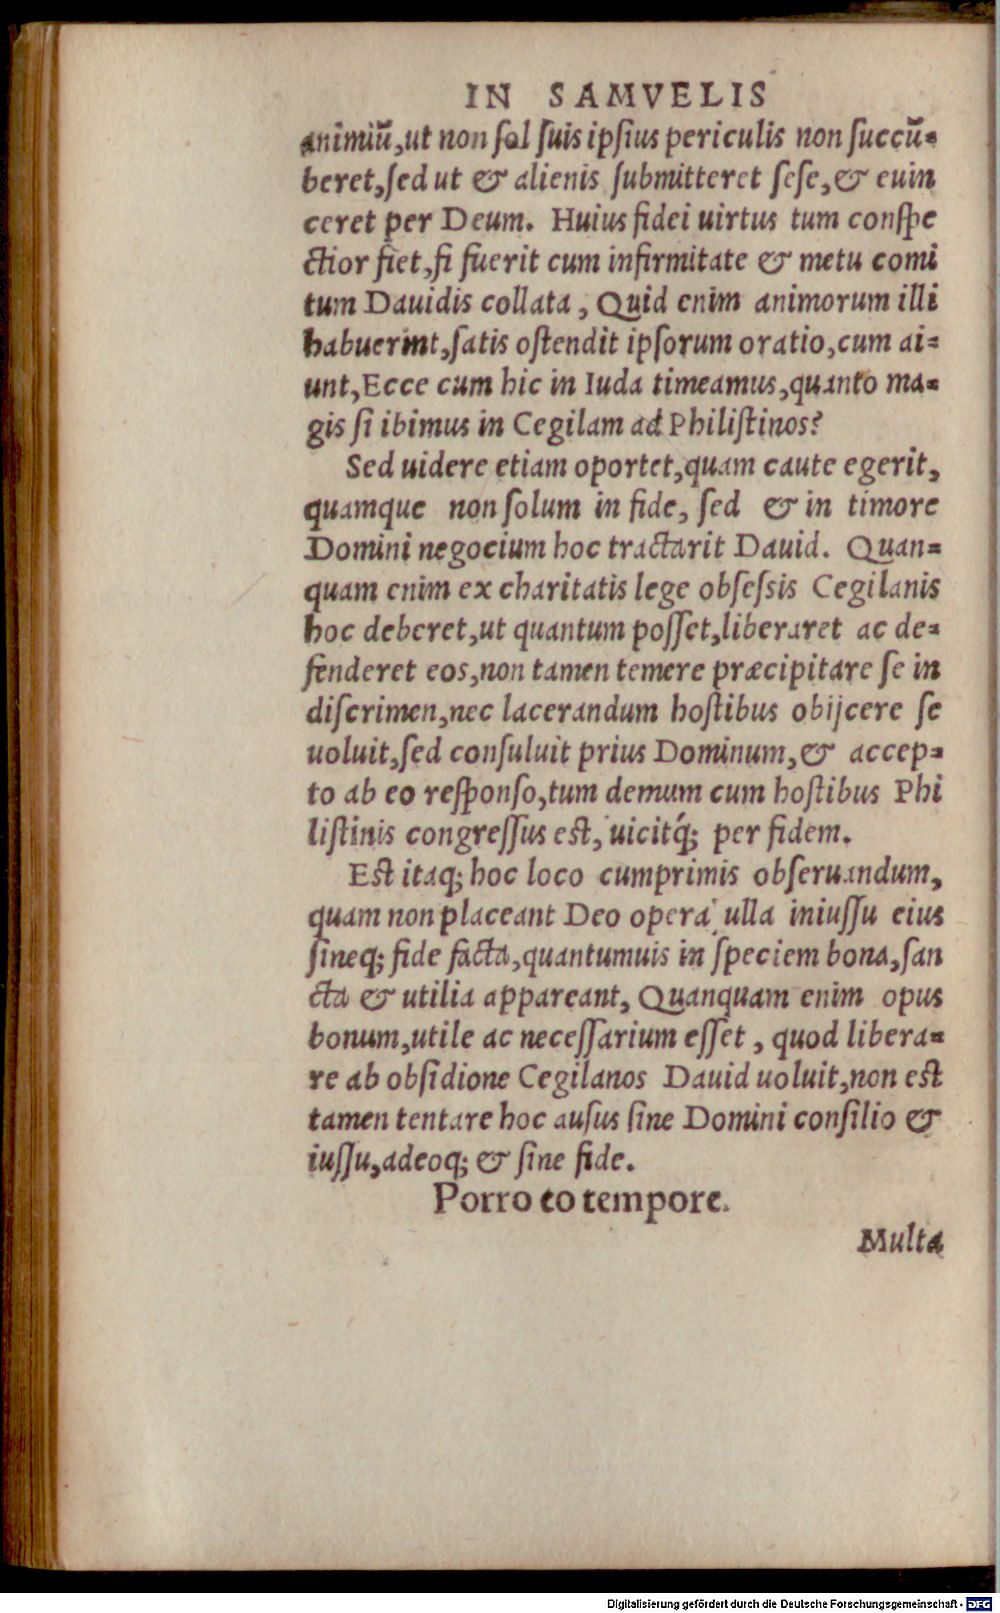 IN SAMVELIS
animiũ,ut non sol suis ipsius periculis non succũ-
beret,sed ut & alienis submitteret sese,& euin
ceret per Deum. Huius fidei uirtus tum conspe
ctior fiet,si fuerit cum infirmitate & metu comi
tum Dauidis collata, Quid enim animorum illi
habuerint,satis ostendit ipsorum oratio,cum ai-
unt,Ecce cum hic in Iuda timeamus,quanto ma-
gis si ibimus in Cegilam ad Philistinos?
Sed uidere etiam oportet,quam caute egerit,
quamque non solum in fide, sed & in timore
Domini negocium hoc tractarit Dauid. Quan-
quam enim ex charitatis lege obsessis Cegilanis
hoc deberet,ut quantum posset,liberaret ac de-
fenderet eos,non tamen temere præcipitare se in
discrimen,nec lacerandum hostibus obijcere se
uoluit,sed consuluit prius Dominum,& accep-
to ab eo responso,tum demum cum hostibus Phi
listinis congressus est, uicitq́; per fidem.
Est itaq; hoc loco cumprimis obseruandum,
quam non placeant Deo opera ulla iniussu eius
sineq; fide facta,quantumuis in speciem bona,san
cta & utilia appareant, Quanquam enim opus
bonum,utile ac necessarium esset, quod libera-
re ab obsidione Cegilanos Dauid uoluit,non est
tamen tentare hoc ausus sine Domini consilio &
iussu,adeoq; & sine fide.
Porro eo tempore.
Multa
Digitalisierung gefördert durch die Deutsche Forschungsgemeinschaft - DFG